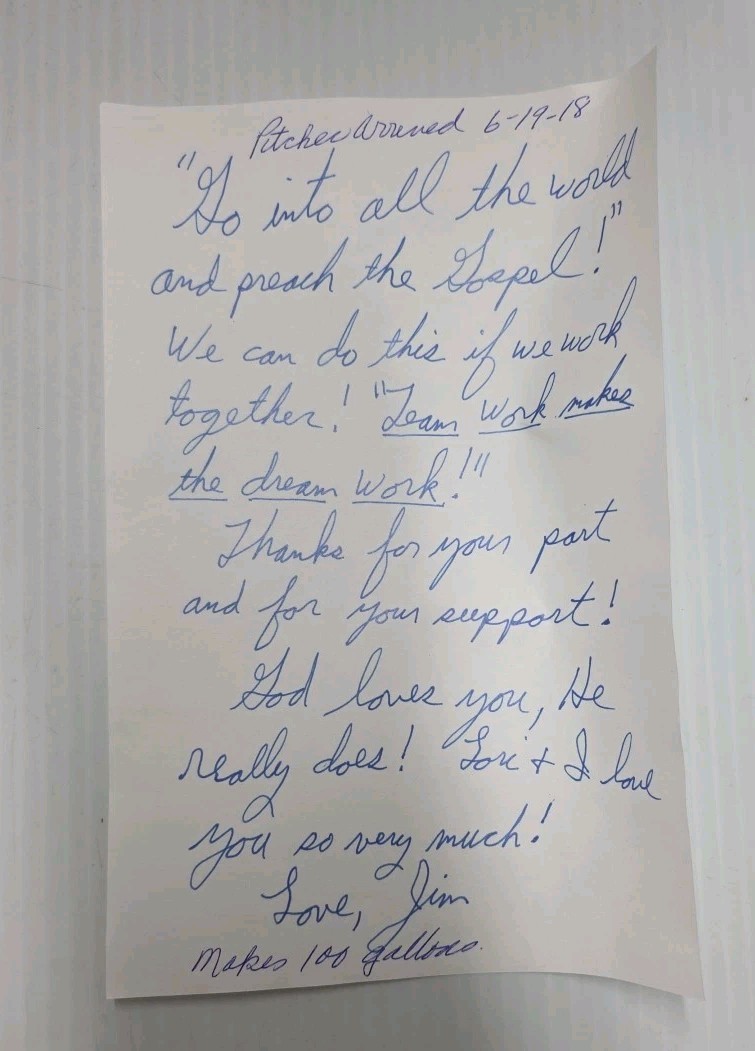 Pitcher Arrived 6-19-18
"Go into all the world
and preach the Gospel!"
We can do this if we work
together! "Team Work makes
the dream work!"
Thanks for your part
and for your support!
God loves you, He
really does! Lori + I love
you so very much!
Love, Jim
Makes 100 gallons.